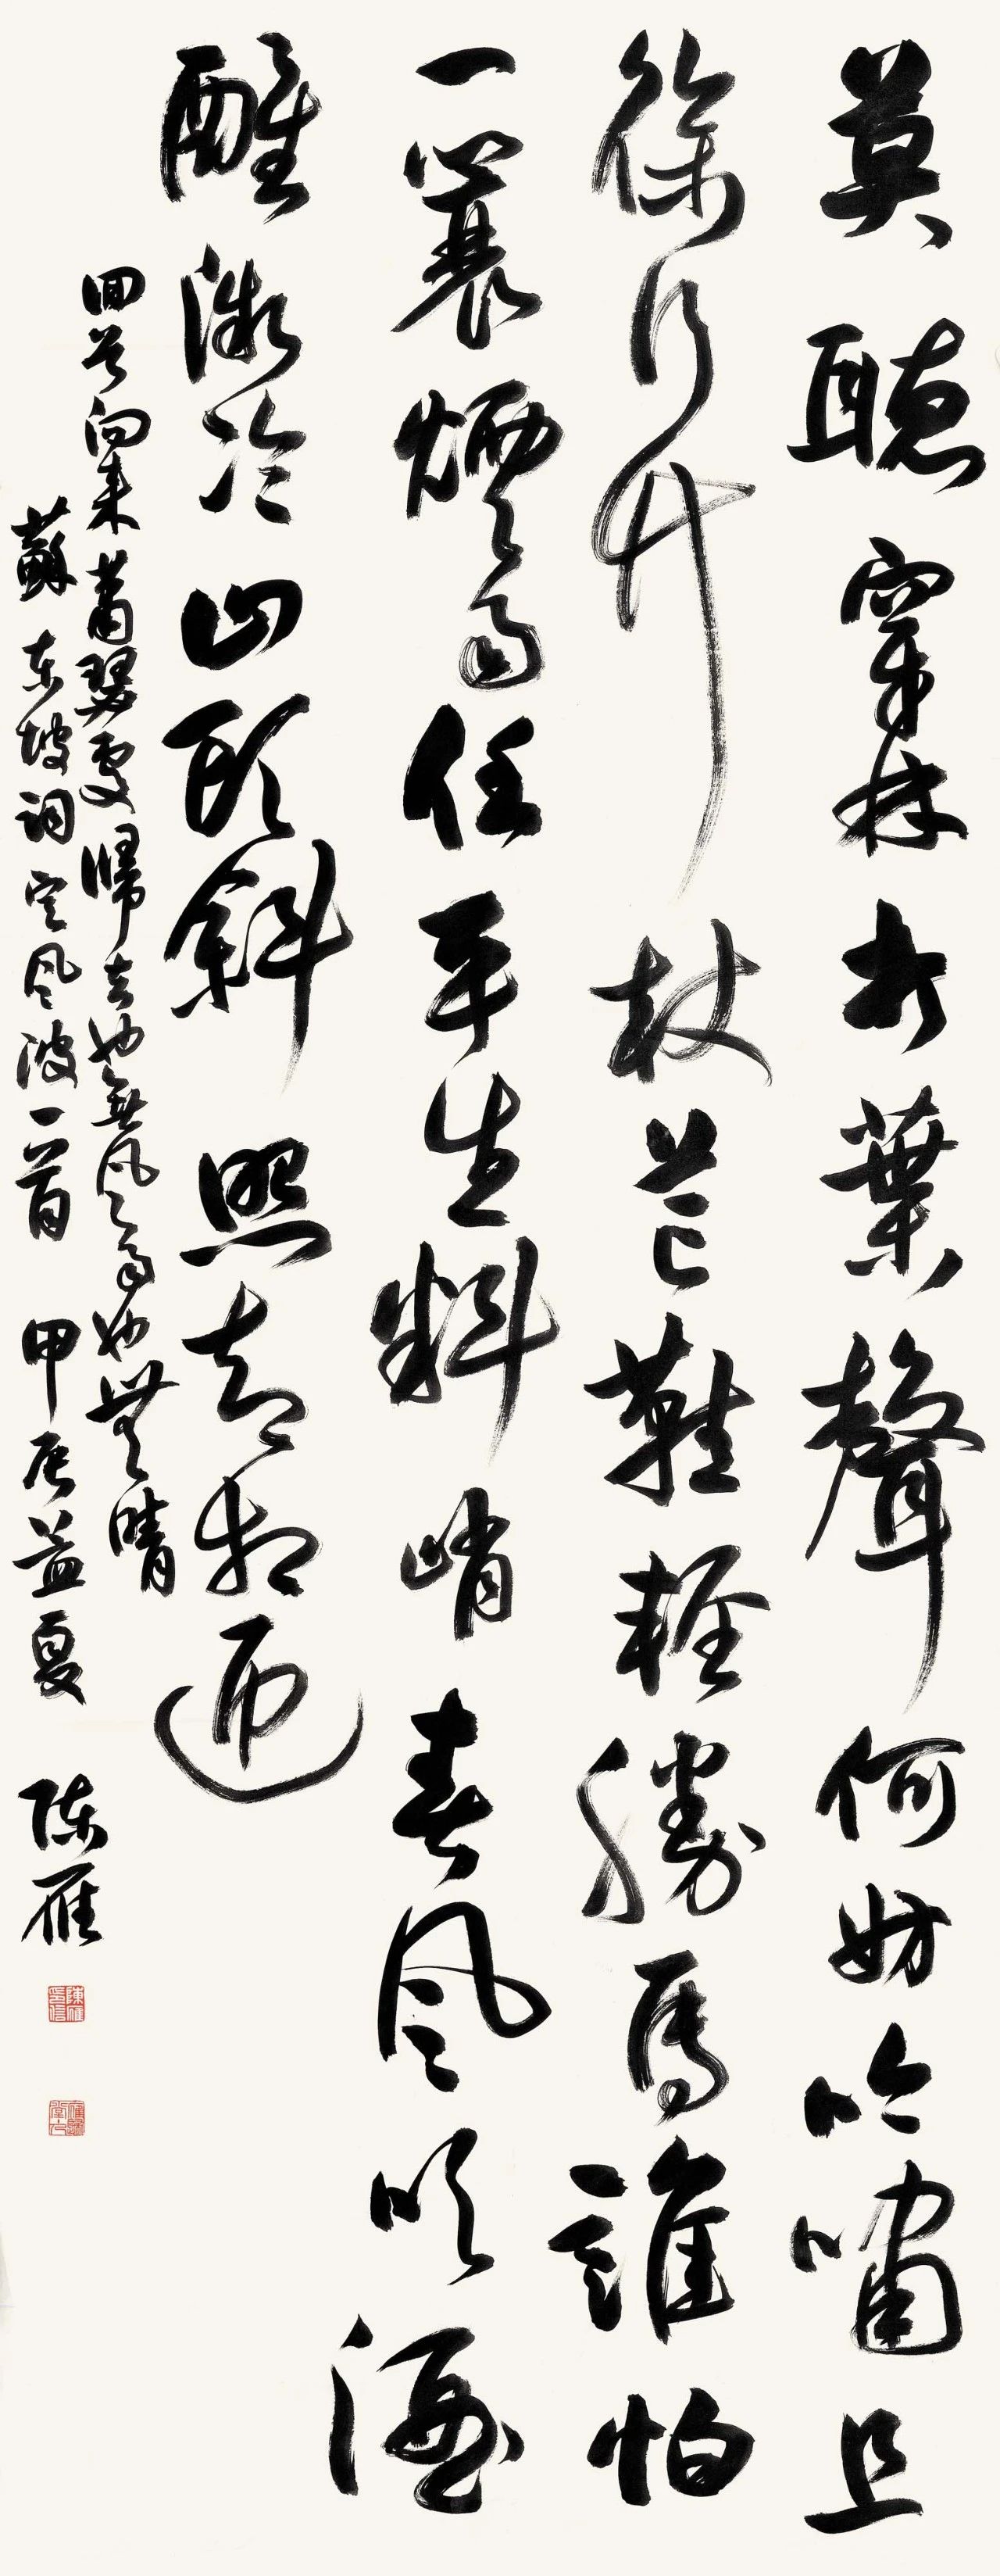 莫聽穿林打葉聲何妨吟嘯且
徐行竹杖芒鞋輕勝馬誰怕
一蓑煙雨任平生料峭春風吹酒
醒微冷山頭斜照却相迎
回首向來蕭瑟處歸去也無風雨也無晴
蘇東坡詞定風波一首 甲辰孟夏 陳雁
陳雁印信